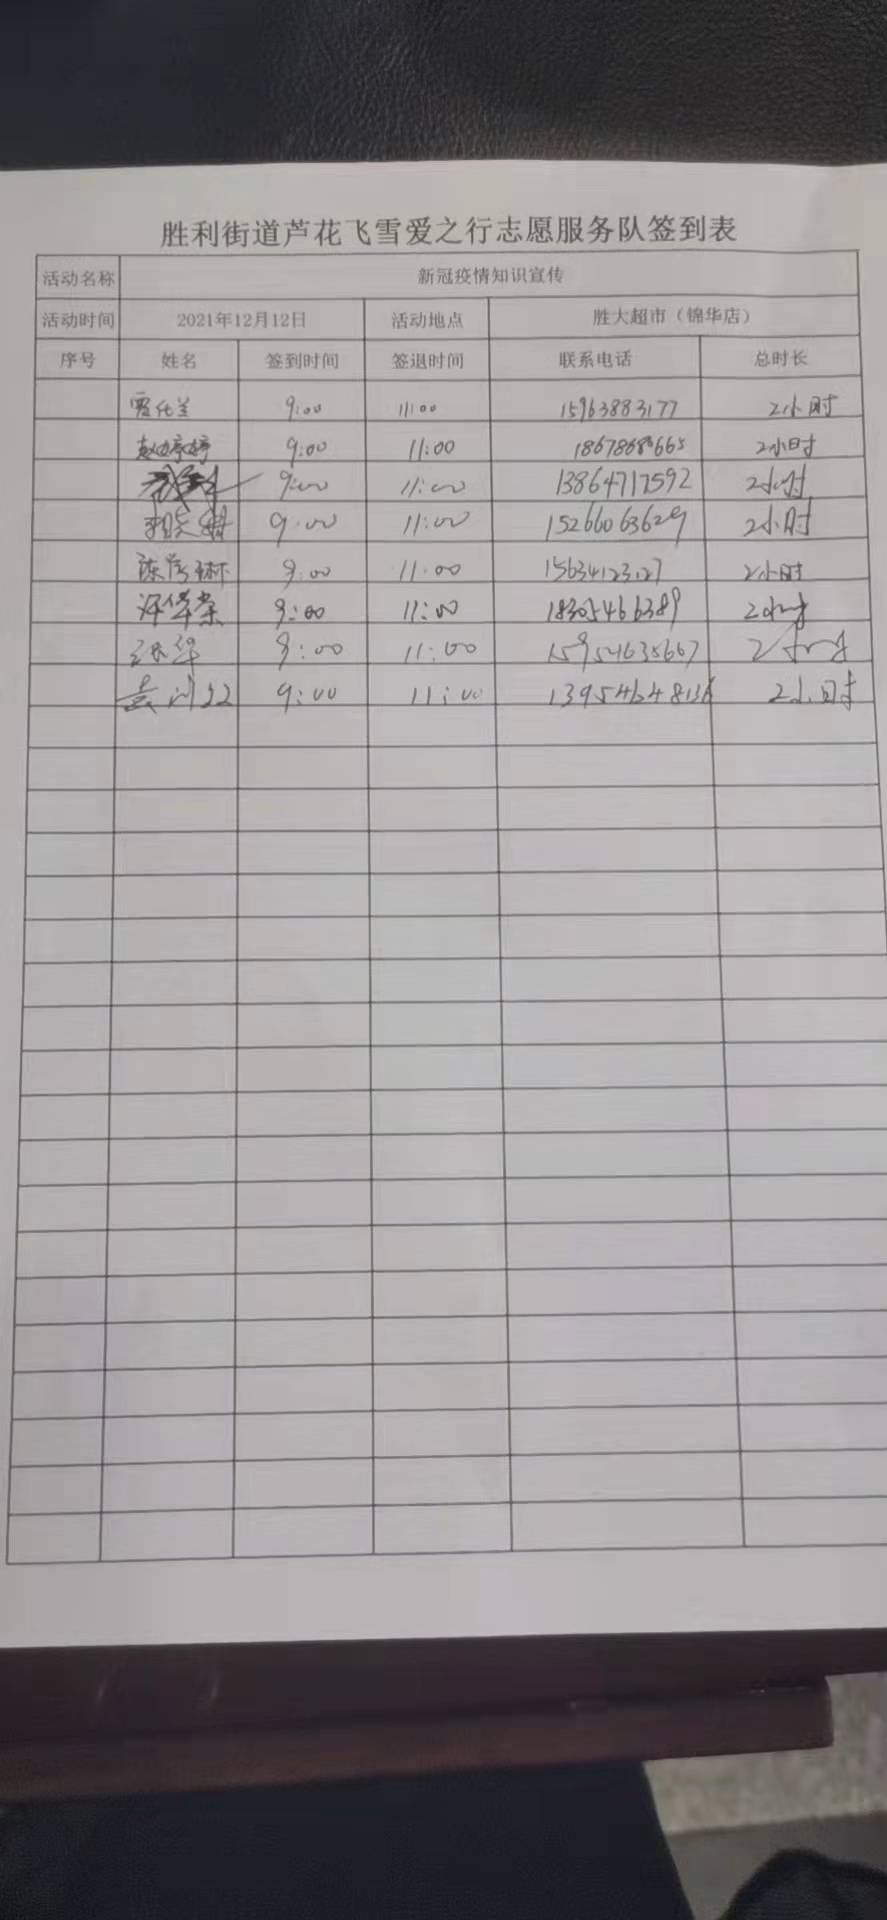 胜利街道芦花飞雪爱之行志愿服务队签到表
活动名称 新冠疫情知识宣传
活动时间 2021年12月12日 活动地点 胜大超市（锦华店）
序号 姓名 签到时间 签退时间 联系电话 总时长
贾化兰 9:00 11:00 15963883177 2小时
赵婷婷 9:00 11:00 18678686665 2小时
9:00 11:00 13864717592 2小时
9:00 11:00 15266063629 2小时
9:00 11:00 15634123127 2小时
9:00 11:00 18305466389 2小时
9:00 11:00 15954635667 2小时
9:00 11:00 13954648136 2小时